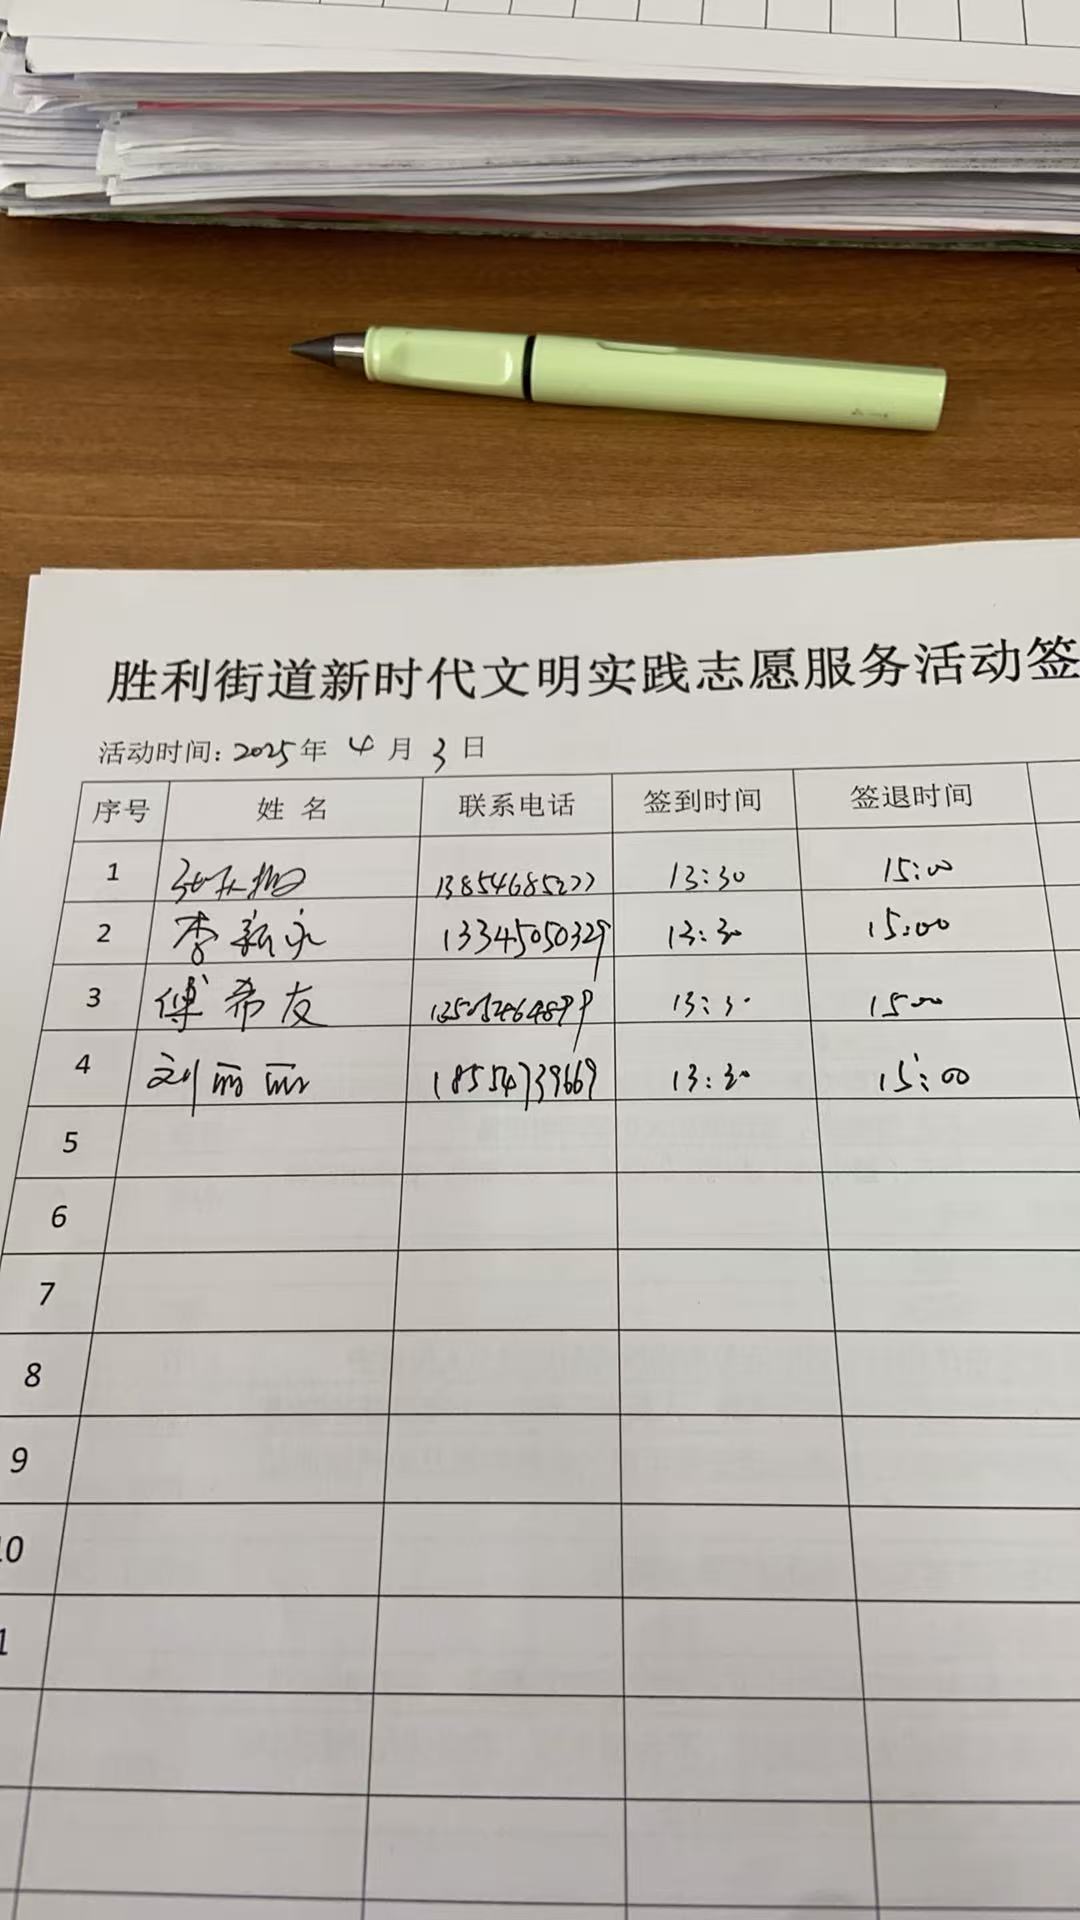 胜利街道新时代文明实践志愿服务活动签
活动时间: 2025年 4月 3日
序号 姓 名 联系电话 签到时间 签退时间
1 13854685277 13:30 15:00
2 李新永 13345050329 13:30 15:00
3 傅希友 13:30 1500
4 刘丽丽 18554739669 13:30 15:00
5
6
7
8
9
10
1